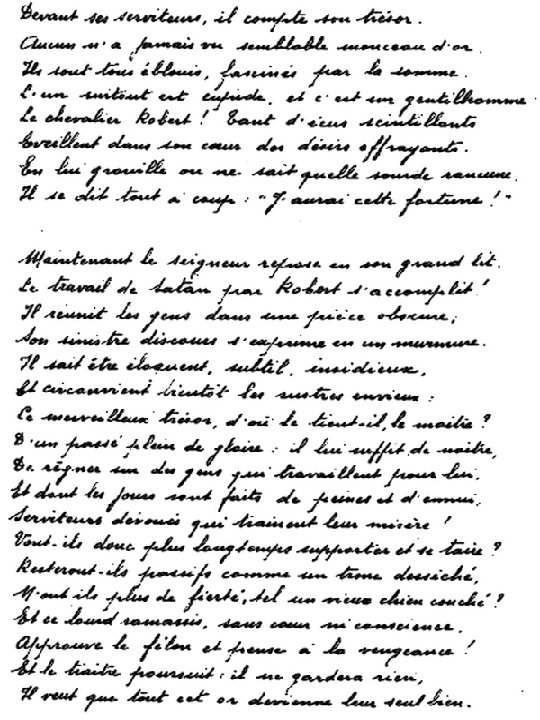 Devant ses serviteurs, il compte son trésor.
Aucun n'a jamais vu semblable monceau d'or.
Ils sont tous éblouis, fascinés par la somme.
L'un surtout est cupide, et c'est un gentilhomme
Le chevalier Robert ! Tant d'écus scintillants
Eveillent dans son cœur des désirs effrayants.
En lui grouille on ne sait quelle sourde rancune.
Il se dit tout à coup : "J'aurai cette fortune !"
Maintenant le seigneur repose en son grand lit.
Le travail de Satan par Robert s'accomplit !
Il réunit les gens dans une pièce obscure,
Son sinistre discours s'exprime en un murmure.
Il sait être éloquent, subtil, insidieux,
Et circonvient bientôt les rustres envieux :
Ce merveilleux trésor, d'où le tient-il, le maître ?
D'un passé plein de gloire : il lui suffit de naître,
De régner sur des gens qui travaillent pour lui,
Et dont les jours sont faits de peines et d'ennui,
Serviteurs dévoués qui trainent leur misère !
Vont-ils donc plus longtemps supporter et se taire ?
Resteront-ils passifs comme un tronc desséché,
N'ont ils plus de fierté, tel un vieux chien couché ?
Et ce lourd ramassis, sans cœur ni conscience,
Approuve le félon et pense à la vengeance !
Et le traitre poursuit : il ne gardera rien,
Il veut que tout cet or devienne leur seul bien.